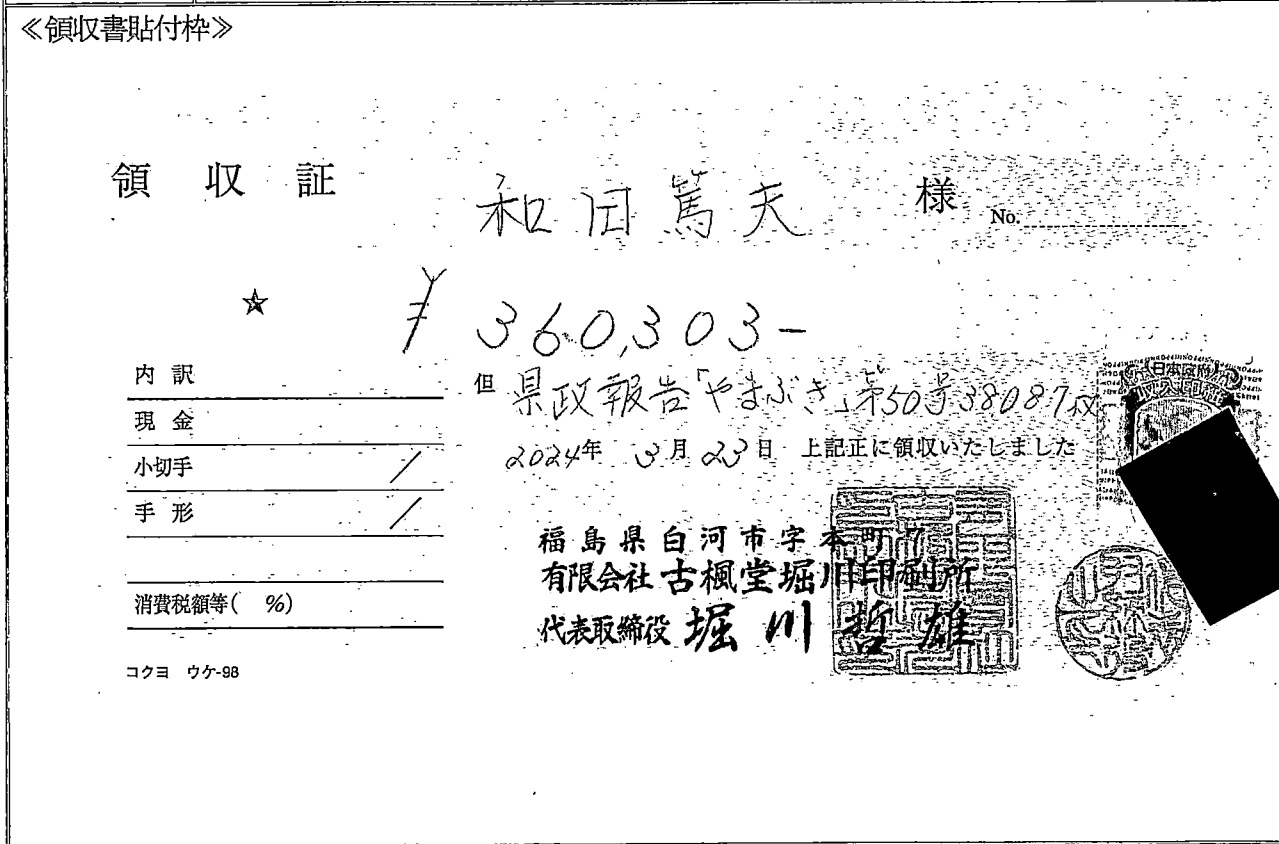 ≪領収書貼付枠≫
領 収 証
和田篤夫 様
No.
☆
¥360,303-
内 訳
現 金
小切手
手 形
消費税額等( %)
コクヨ ウケ-98
但 県政報告「やまぶき」第50号38087枚
2024年 3月 23日 上記正に領収いたしました
日本政府
収入印紙
福島県白河市字本町7
有限会社 古楓堂堀川印刷所
代表取締役 堀川哲雄